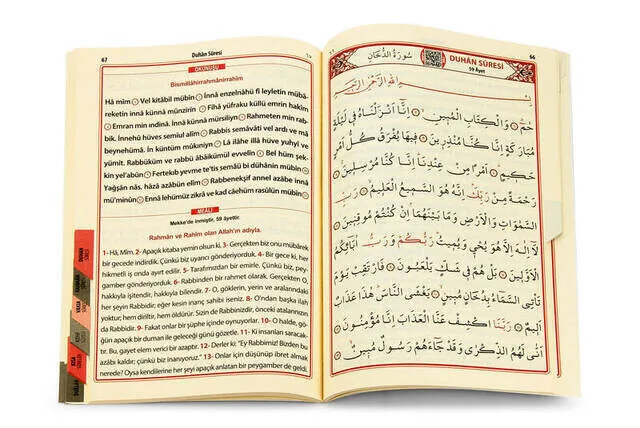 67
Duhân Sûresi
OKUNUŞU
Bismillâhirrahmânirrahîm
Hâ mîm Vel kitâbil mübîn İnnâ enzelnâhü fî leyletin mübâ-
reketin innâ künnâ münzirîn Fîhâ yüfraku küllü emrin hakîm
Emran min ındinâ. İnnâ künnâ mürsilîn Rahmeten min rab-
bik. İnnehû hüves semîul alîm Rabbis semâvâti vel ardı ve mâ
beynehümâ. İn küntüm mûkınîn Lâ ilâhe illâ hüve yuhyî ve
yümît. Rabbüküm ve rabbü âbâikümül evvelîn Bel hüm şek-
kin yel'abûn Fertekıb yevme te'tis semâü bi dühânin mübîn
Yağşân nâs, hâzâ azâbün elîm Rabbenekşif annel azâbe innâ
mü'minûn Ennâ lehümüz zikrâ ve kad câehüm rasûlün mübîn
MEÂLİ
Mekke'de inmiştir, 59 âyettir.
Rahmân ve Rahîm olan Allah'ın adıyla.
1- Hâ, Mîm. 2- Apaçık kitaba yemin olsun ki, 3- Gerçekten biz onu mübârek
bir gecede indirdik. Çünkü biz uyarıcı gönderiyorduk. 4- Bir gece ki, her
hikmetli iş onda ayırt edilir. 5- Tarafımızdan bir emirle. Çünkü biz, pey-
gamber gönderiyorduk. 6- Rabbinden bir rahmet olarak. Gerçekten O,
hakkıyla işitendir, hakkıyla bilendir. 7- O, göklerin, yerin ve aralarındaki
her şeyin Rabbidir; eğer kesin inanç sahibi iseniz. 8- O'ndan başka ilah
yoktur; hem diriltir, hem öldürür. Sizin de Rabbinizdir, önceki atalarınızın
da Rabbidir. 9- Fakat onlar bir şüphe içinde oynuyorlar. 10- O halde, gö-
ğün apaçık bir duman ile geleceği günü gözetle. 11- Ki insanları saracak-
tır. Bu, gayet elem verici bir azaptır. 12- Derler ki: "Ey Rabbimiz! Bizden bu
azâbı kaldır; çünkü biz inanıyoruz." 13- Onlar için düşünüp ibret almak
nerede? Oysa kendilerine her şeyi apaçık anlatan bir peygamber de geldi.
66
سُورَةُ الدُّخَانِ
DUHÂN SÛRESİ
59 Âyet
بِسْمِ اللهِ الرَّحْمٰنِ الرَّحِيمِ
حٰمٓ ۝ وَالْكِتَابِ الْمُبِينِ ۝ اِنَّٓا اَنْزَلْنَاهُ فِي لَيْلَةٍ
مُبَارَكَةٍ اِنَّا كُنَّا مُنْذِرِينَ ۝ فِيهَا يُفْرَقُ كُلُّ اَمْرٍ
حَكِيمٍ ۝ اَمْرًا مِنْ عِنْدِنَا اِنَّا كُنَّا مُرْسِلِينَ ۝
رَحْمَةً مِنْ رَبِّكَ اِنَّهُ هُوَ السَّمِيعُ الْعَلِيمُ ۝ رَبِّ
السَّمٰوَاتِ وَالْاَرْضِ وَمَا بَيْنَهُمَا اِنْ كُنْتُمْ مُوقِنِينَ ۝
لَٓا اِلٰهَ اِلَّا هُوَ يُحْيِي وَيُمِيتُ رَبُّكُمْ وَرَبُّ اٰبَٓائِكُمُ
الْاَوَّلِينَ ۝ بَلْ هُمْ فِي شَكٍّ يَلْعَبُونَ ۝ فَارْتَقِبْ يَوْمَ
تَأْتِي السَّمَٓاءُ بِدُخَانٍ مُبِينٍ ۝ يَغْشَى النَّاسَ هٰذَا عَذَابٌ
اَلِيمٌ ۝ رَبَّنَا اكْشِفْ عَنَّا الْعَذَابَ اِنَّا مُؤْمِنُونَ ۝
اَنّٰى لَهُمُ الذِّكْرٰى وَقَدْ جَٓاءَهُمْ رَسُولٌ مُبِينٌ ۝